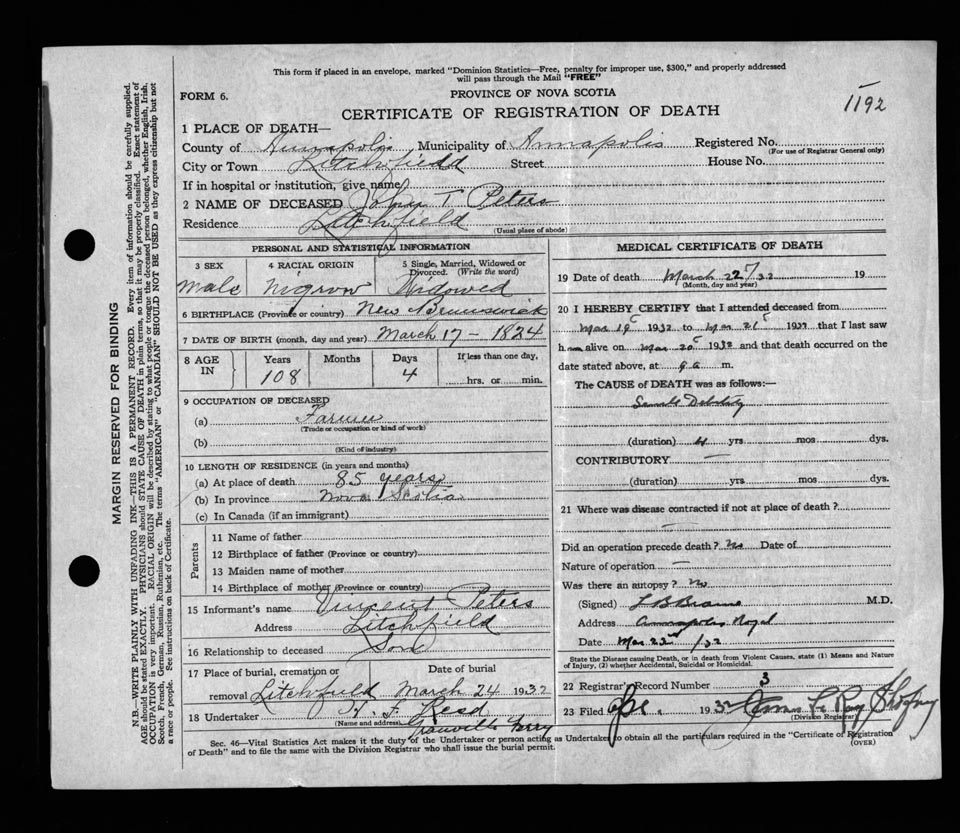 This form if placed in an envelope, marked "Dominion Statistics—Free, penalty for improper use, $300," and properly addressed
will pass through the Mail "FREE"
FORM 6.
PROVINCE OF NOVA SCOTIA
CERTIFICATE OF REGISTRATION OF DEATH
1192
1 PLACE OF DEATH—
County of Annapolis Municipality of Annapolis Registered No.
(For use of Registrar General only)
City or Town Litchfield Street House No.
If in hospital or institution, give name
2 NAME OF DECEASED John T Peters
Residence Litchfield
(Usual place of abode)
PERSONAL AND STATISTICAL INFORMATION
3 SEX 4 RACIAL ORIGIN 5 Single, Married, Widowed or Divorced. (Write the word)
Male Nigrow Widowed
6 BIRTHPLACE (Province or country) New Brunswick
7 DATE OF BIRTH (month, day and year) March 17 - 1824
8 AGE IN Years Months Days If less than one day,
108 4 hrs. or min.
9 OCCUPATION OF DECEASED
(a) Farmer
(Trade or occupation or kind of work)
(b)
(Kind of industry)
10 LENGTH OF RESIDENCE (in years and months)
(a) At place of death 85 years
(b) In province Nova Scotia
(c) In Canada (if an immigrant)
Parents
11 Name of father
12 Birthplace of father (Province or country)
13 Maiden name of mother
14 Birthplace of mother (Province or country)
15 Informant's name Vincent Peters
Address Litchfield
16 Relationship to deceased Son
17 Place of burial, cremation or Date of burial
removal Litchfield March 24 1932
18 Undertaker F. Reed
(Name and address) Granville Ferry
MEDICAL CERTIFICATE OF DEATH
19 Date of death March 22 /32 19
(Month, day and year)
20 I HEREBY CERTIFY that I attended deceased from
Mar 19 1932 to Mar 21 1932 that I last saw
him alive on Mar 20 1932 and that death occurred on the
date stated above, at 9 a m.
The CAUSE of DEATH was as follows:—
Senile Debility
(duration) 4 yrs mos dys.
CONTRIBUTORY —
(duration) yrs mos dys.
21 Where was disease contracted if not at place of death?
—
Did an operation precede death? No Date of
Nature of operation —
Was there an autopsy? No
(Signed) M.D.
Address Annapolis Royal
Date Mar 22nd /32
State the Disease causing Death, or in death from Violent Causes, state (1) Means and Nature
of Injury, (2) whether Accidental, Suicidal or Homicidal.
22 Registrar's Record Number 3
23 Filed 1932
(Division Registrar)
Sec. 46—Vital Statistics Act makes it the duty of the Undertaker or person acting as Undertaker to obtain all the particulars required in the "Certificate of Registration
of Death" and to file the same with the Division Registrar who shall issue the burial permit.
(OVER)
MARGIN RESERVED FOR BINDING
N.B.—WRITE PLAINLY WITH UNFADING INK—THIS IS A PERMANENT RECORD. Every item of information should be carefully supplied.
AGE should be stated EXACTLY. PHYSICIANS should STATE CAUSE OF DEATH in plain terms, so that it may be properly classified. Exact statement of
OCCUPATION is very important. RACIAL ORIGIN will be described by stating to what people or tongue the deceased person belonged, whether English, Irish,
Scotch, French, German, Russian, Ruthenian, etc. The terms "AMERICAN" or "CANADIAN" SHOULD NOT BE USED as they express citizenship but not
a race or people. See instructions on back of Certificate.